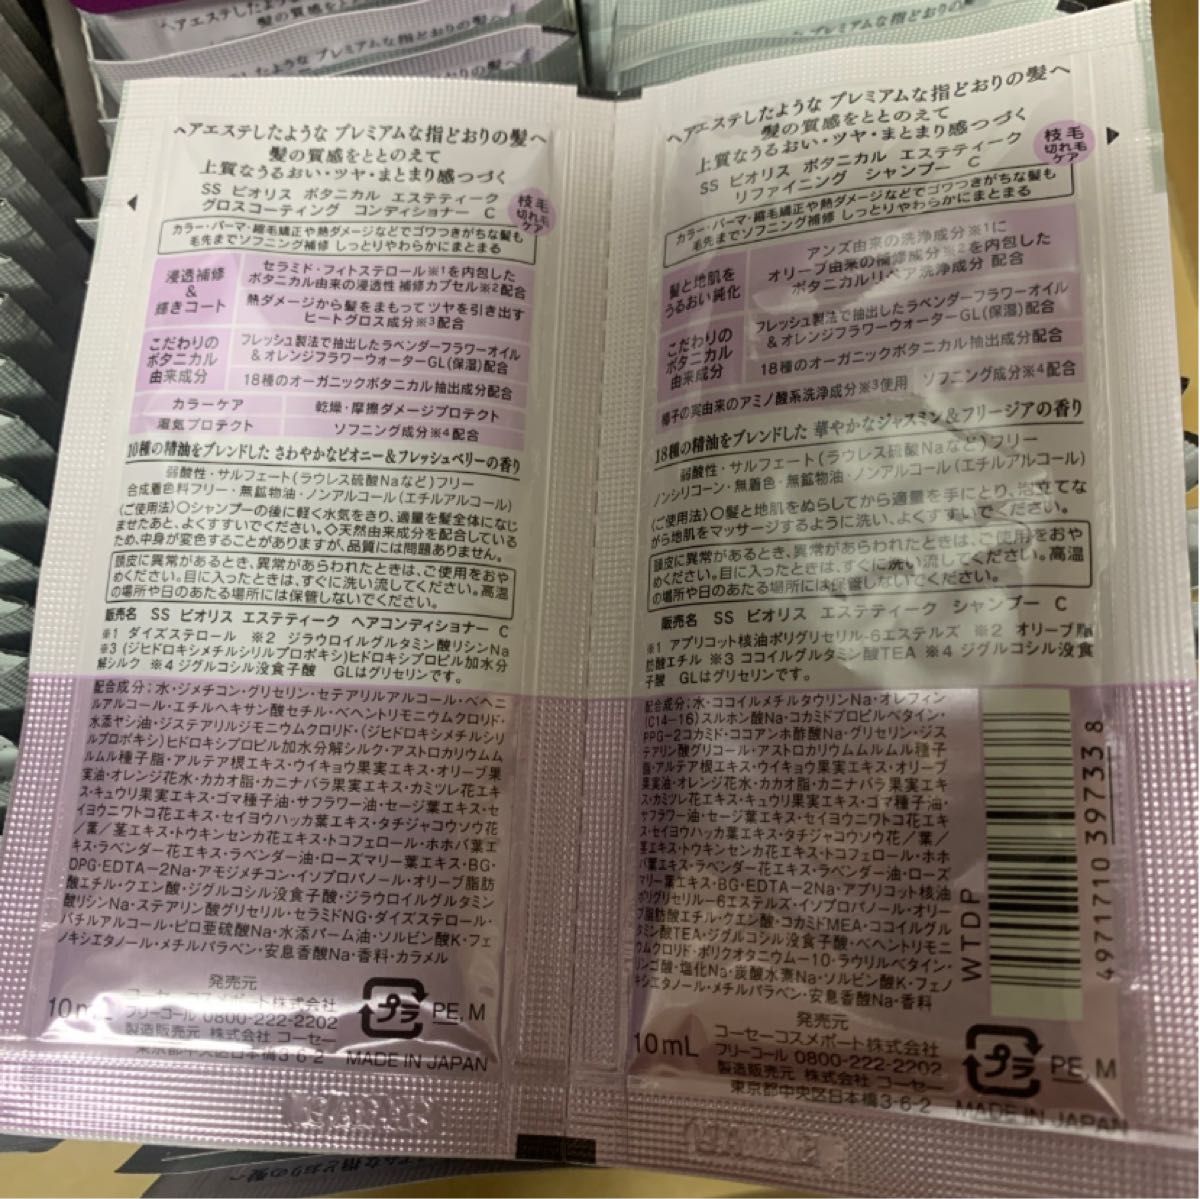 ヘアエステしたような プレミアムな指どおりの髪へ
髪の質感をととのえて
上質なうるおい・ツヤ・まとまり感つづく
SS ビオリス ボタニカル エステティーク
グロスコーティング コンディショナー C
枝毛
切れ毛
ケア
カラー・パーマ・縮毛矯正や熱ダメージなどでゴワつきがちな髪も
毛先までソフニング補修 しっとりやわらかにまとまる
浸透補修
&
輝きコート
セラミド・フィトステロール※1を内包した
ボタニカル由来の浸透性 補修カプセル※2配合
熱ダメージから髪をまもって ツヤを引き出す
ヒートグロス成分※3配合
こだわりの
ボタニカル
由来成分
フレッシュ製法で抽出したラベンダーフラワーオイル
&オレンジフラワーウォーターGL(保湿)配合
18種のオーガニックボタニカル抽出成分配合
カラーケア
乾燥・摩擦ダメージプロテクト
湿気プロテクト
ソフニング成分※4配合
10種の精油をブレンドした さわやかなピオニー&フレッシュベリーの香り
弱酸性・サルフェート(ラウレス硫酸Naなど)フリー
合成着色料フリー・無鉱物油・ノンアルコール(エチルアルコール)
〈ご使用法〉○シャンプーの後に軽く水気をきり、適量を髪全体になじ
ませたあと、よくすすいでください。◇天然由来成分を配合している
ため、中身が変色することがありますが、品質には問題ありません。
頭皮に異常があるとき、異常があらわれたときは、ご使用をおや
めください。目に入ったときは、すぐに洗い流してください。高温
の場所や日のあたる場所には保管しないでください。
販売名 SS ビオリス エステティーク ヘアコンディショナー C
※1 ダイズステロール ※2 ジラウロイルグルタミン酸リシンNa
※3 (ジヒドロキシメチルシリルプロポキシ)ヒドロキシプロピル加水分
解シルク ※4 ジグルコシル没食子酸 GLはグリセリンです。
配合成分:水・ジメチコン・グリセリン・セテアリルアルコール・ベヘニ
ルアルコール・エチルヘキサン酸セチル・ベヘントリモニウムクロリド・
水添ヤシ油・ジステアリルジモニウムクロリド・(ジヒドロキシメチルシリ
ルプロポキシ)ヒドロキシプロピル加水分解シルク・アストロカリウムム
ルムル種子脂・アルテア根エキス・ウイキョウ果実エキス・オリーブ果
実油・オレンジ花水・カカオ脂・カニナバラ果実エキス・カミツレ花エキ
ス・キュウリ果実エキス・ゴマ種子油・サフラワー油・セージ葉エキス・セ
イヨウニワトコ花エキス・セイヨウハッカ葉エキス・タチジャコウソウ花
/葉/茎エキス・トウキンセンカ花エキス・トコフェロール・ホホバ葉エ
キス・ラベンダー花エキス・ラベンダー油・ローズマリー葉エキス・BG・
DPG・EDTA-2Na・アモジメチコン・イソプロパノール・オリーブ脂肪
酸エチル・クエン酸・ジグルコシル没食子酸・ジラウロイルグルタミン
酸リシンNa・ステアリン酸グリセリル・セラミドNG・ダイズステロール・
バチルアルコール・ピロ亜硫酸Na・水添パーム油・ソルビン酸K・フェ
ノキシエタノール・メチルパラベン・安息香酸Na・香料・カラメル
10mL
発売元
コーセーコスメポート株式会社
フリーコール 0800-222-2202
製造販売元 株式会社 コーセー
東京都中央区日本橋3-6-2
プラ
PE, M
MADE IN JAPAN
ヘアエステしたような プレミアムな指どおりの髪へ
髪の質感をととのえて
上質なうるおい・ツヤ・まとまり感つづく
SS ビオリス ボタニカル エステティーク
リファイニング シャンプー C
枝毛
切れ毛
ケア
カラー・パーマ・縮毛矯正や熱ダメージなどでゴワつきがちな髪も
毛先までソフニング補修 しっとりやわらかにまとまる
髪と地肌を
うるおい純化
アンズ由来の洗浄成分※1に
オリーブ由来の補修成分※2を内包した
ボタニカルリペア洗浄成分 配合
こだわりの
ボタニカル
由来成分
フレッシュ製法で抽出したラベンダーフラワーオイル
&オレンジフラワーウォーターGL(保湿)配合
18種のオーガニックボタニカル抽出成分配合
椰子の実由来のアミノ酸系洗浄成分※3使用
ソフニング成分※4配合
18種の精油をブレンドした 華やかなジャスミン&フリージアの香り
弱酸性・サルフェート(ラウレス硫酸Naなど)フリー
ノンシリコーン・無着色・無鉱物油・ノンアルコール(エチルアルコール)
〈ご使用法〉○髪と地肌をぬらしてから適量を手にとり、泡立てな
がら地肌をマッサージするように洗い、よくすすいでください。
頭皮に異常があるとき、異常があらわれたときは、ご使用をおや
めください。目に入ったときは、すぐに洗い流してください。高温
の場所や日のあたる場所には保管しないでください。
販売名 SS ビオリス エステティーク シャンプー C
※1 アプリコット核油ポリグリセリル-6エステルズ ※2 オリーブ脂
肪酸エチル ※3 ココイルグルタミン酸TEA ※4 ジグルコシル没食
子酸 GLはグリセリンです。
配合成分:水・ココイルメチルタウリンNa・オレフィン
(C14-16)スルホン酸Na・コカミドプロピルベタイン・
PPG-2コカミド・ココアンホ酢酸Na・グリセリン・ジス
テアリン酸グリコール・アストロカリウムムルムル種子
脂・アルテア根エキス・ウイキョウ果実エキス・オリーブ
果実油・オレンジ花水・カカオ脂・カニナバラ果実エキ
ス・カミツレ花エキス・キュウリ果実エキス・ゴマ種子油・
サフラワー油・セージ葉エキス・セイヨウニワトコ花エキ
ス・セイヨウハッカ葉エキス・タチジャコウソウ花/葉/
茎エキス・トウキンセンカ花エキス・トコフェロール・ホホ
バ葉エキス・ラベンダー花エキス・ラベンダー油・ローズ
マリー葉エキス・BG・EDTA-2Na・アプリコット核油
ポリグリセリル-6エステルズ・イソプロパノール・オリー
ブ脂肪酸エチル・クエン酸・コカミドMEA・ココイルグル
タミン酸TEA・ジグルコシル没食子酸・ベヘントリモニ
ウムクロリド・ポリクオタニウム-10・ラウリルベタイン・
リンゴ酸・塩化Na・炭酸水素Na・ソルビン酸K・フェノ
キシエタノール・メチルパラベン・安息香酸Na・香料
WTDP
4971710 397338
10mL
発売元
コーセーコスメポート株式会社
フリーコール 0800-222-2202
製造販売元 株式会社 コーセー
東京都中央区日本橋3-6-2
プラ
PE, M
MADE IN JAPAN